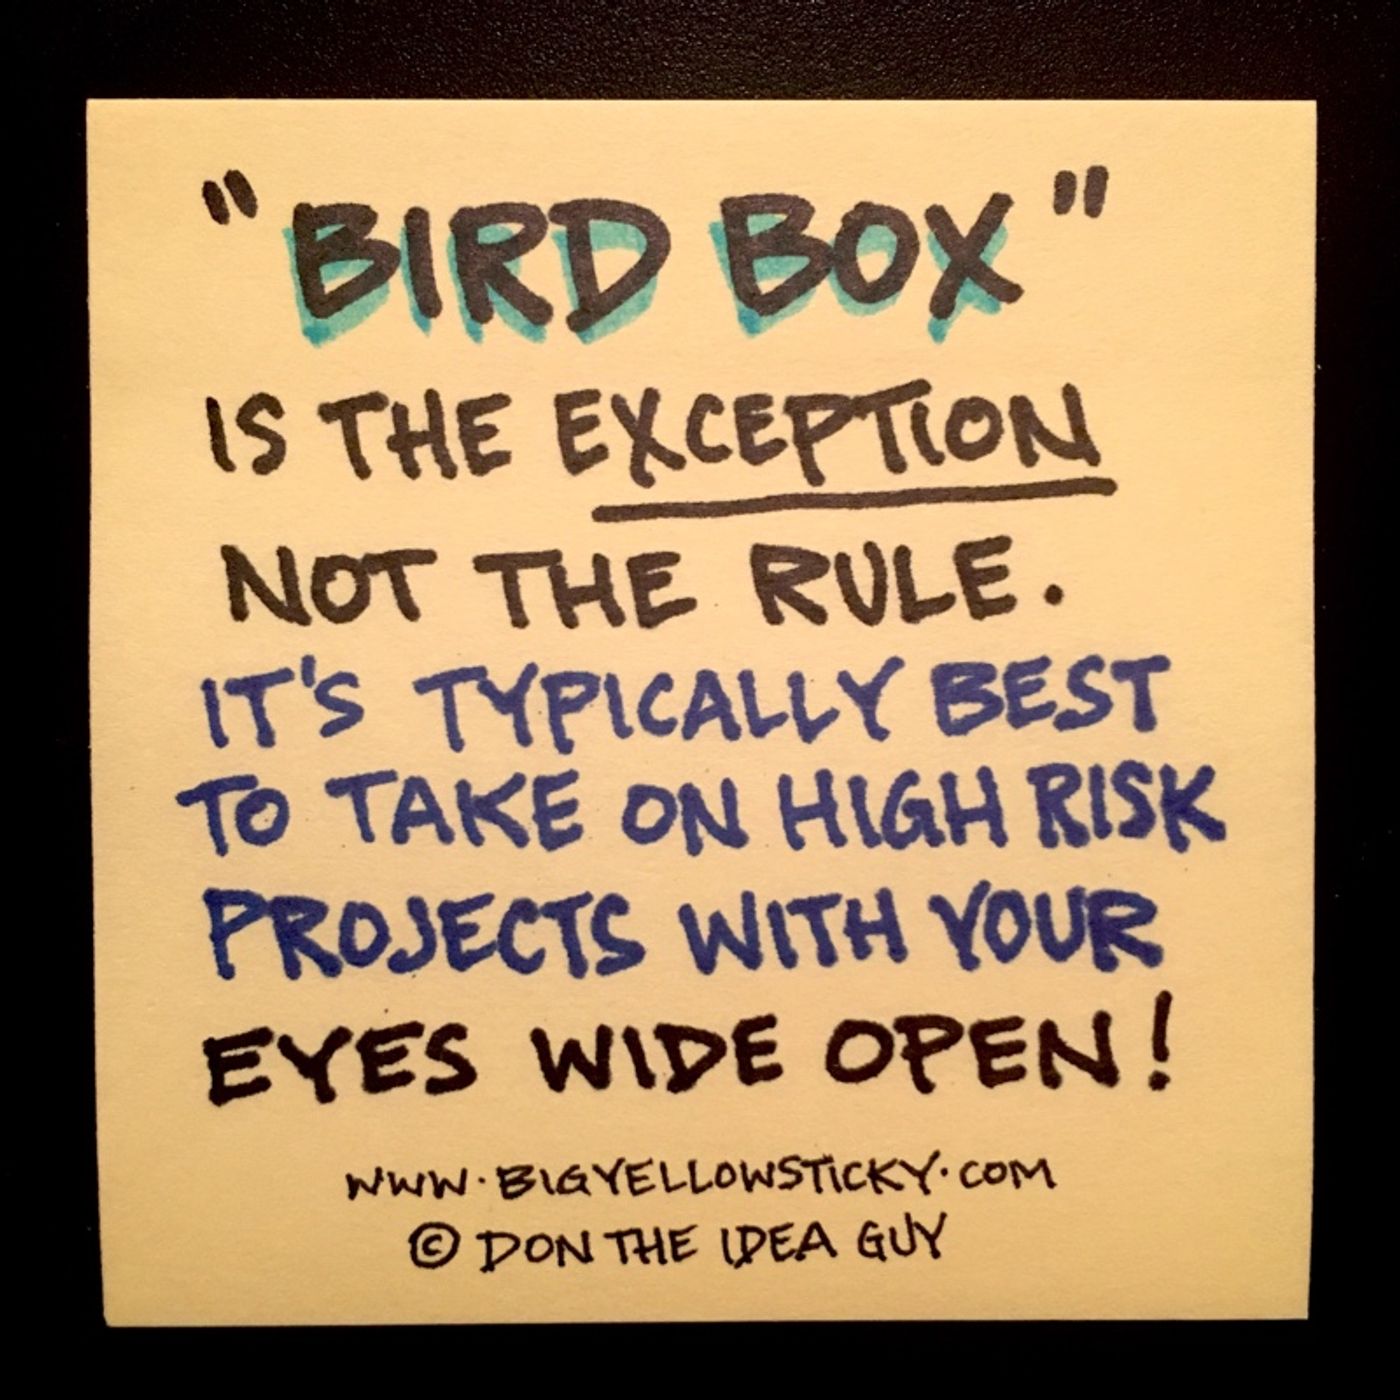 "BIRD BOX"
IS THE EXCEPTION
NOT THE RULE.
IT'S TYPICALLY BEST
TO TAKE ON HIGH RISK
PROJECTS WITH YOUR
EYES WIDE OPEN!
WWW.BIGYELLOWSTICKY.COM
© DON THE IDEA GUY